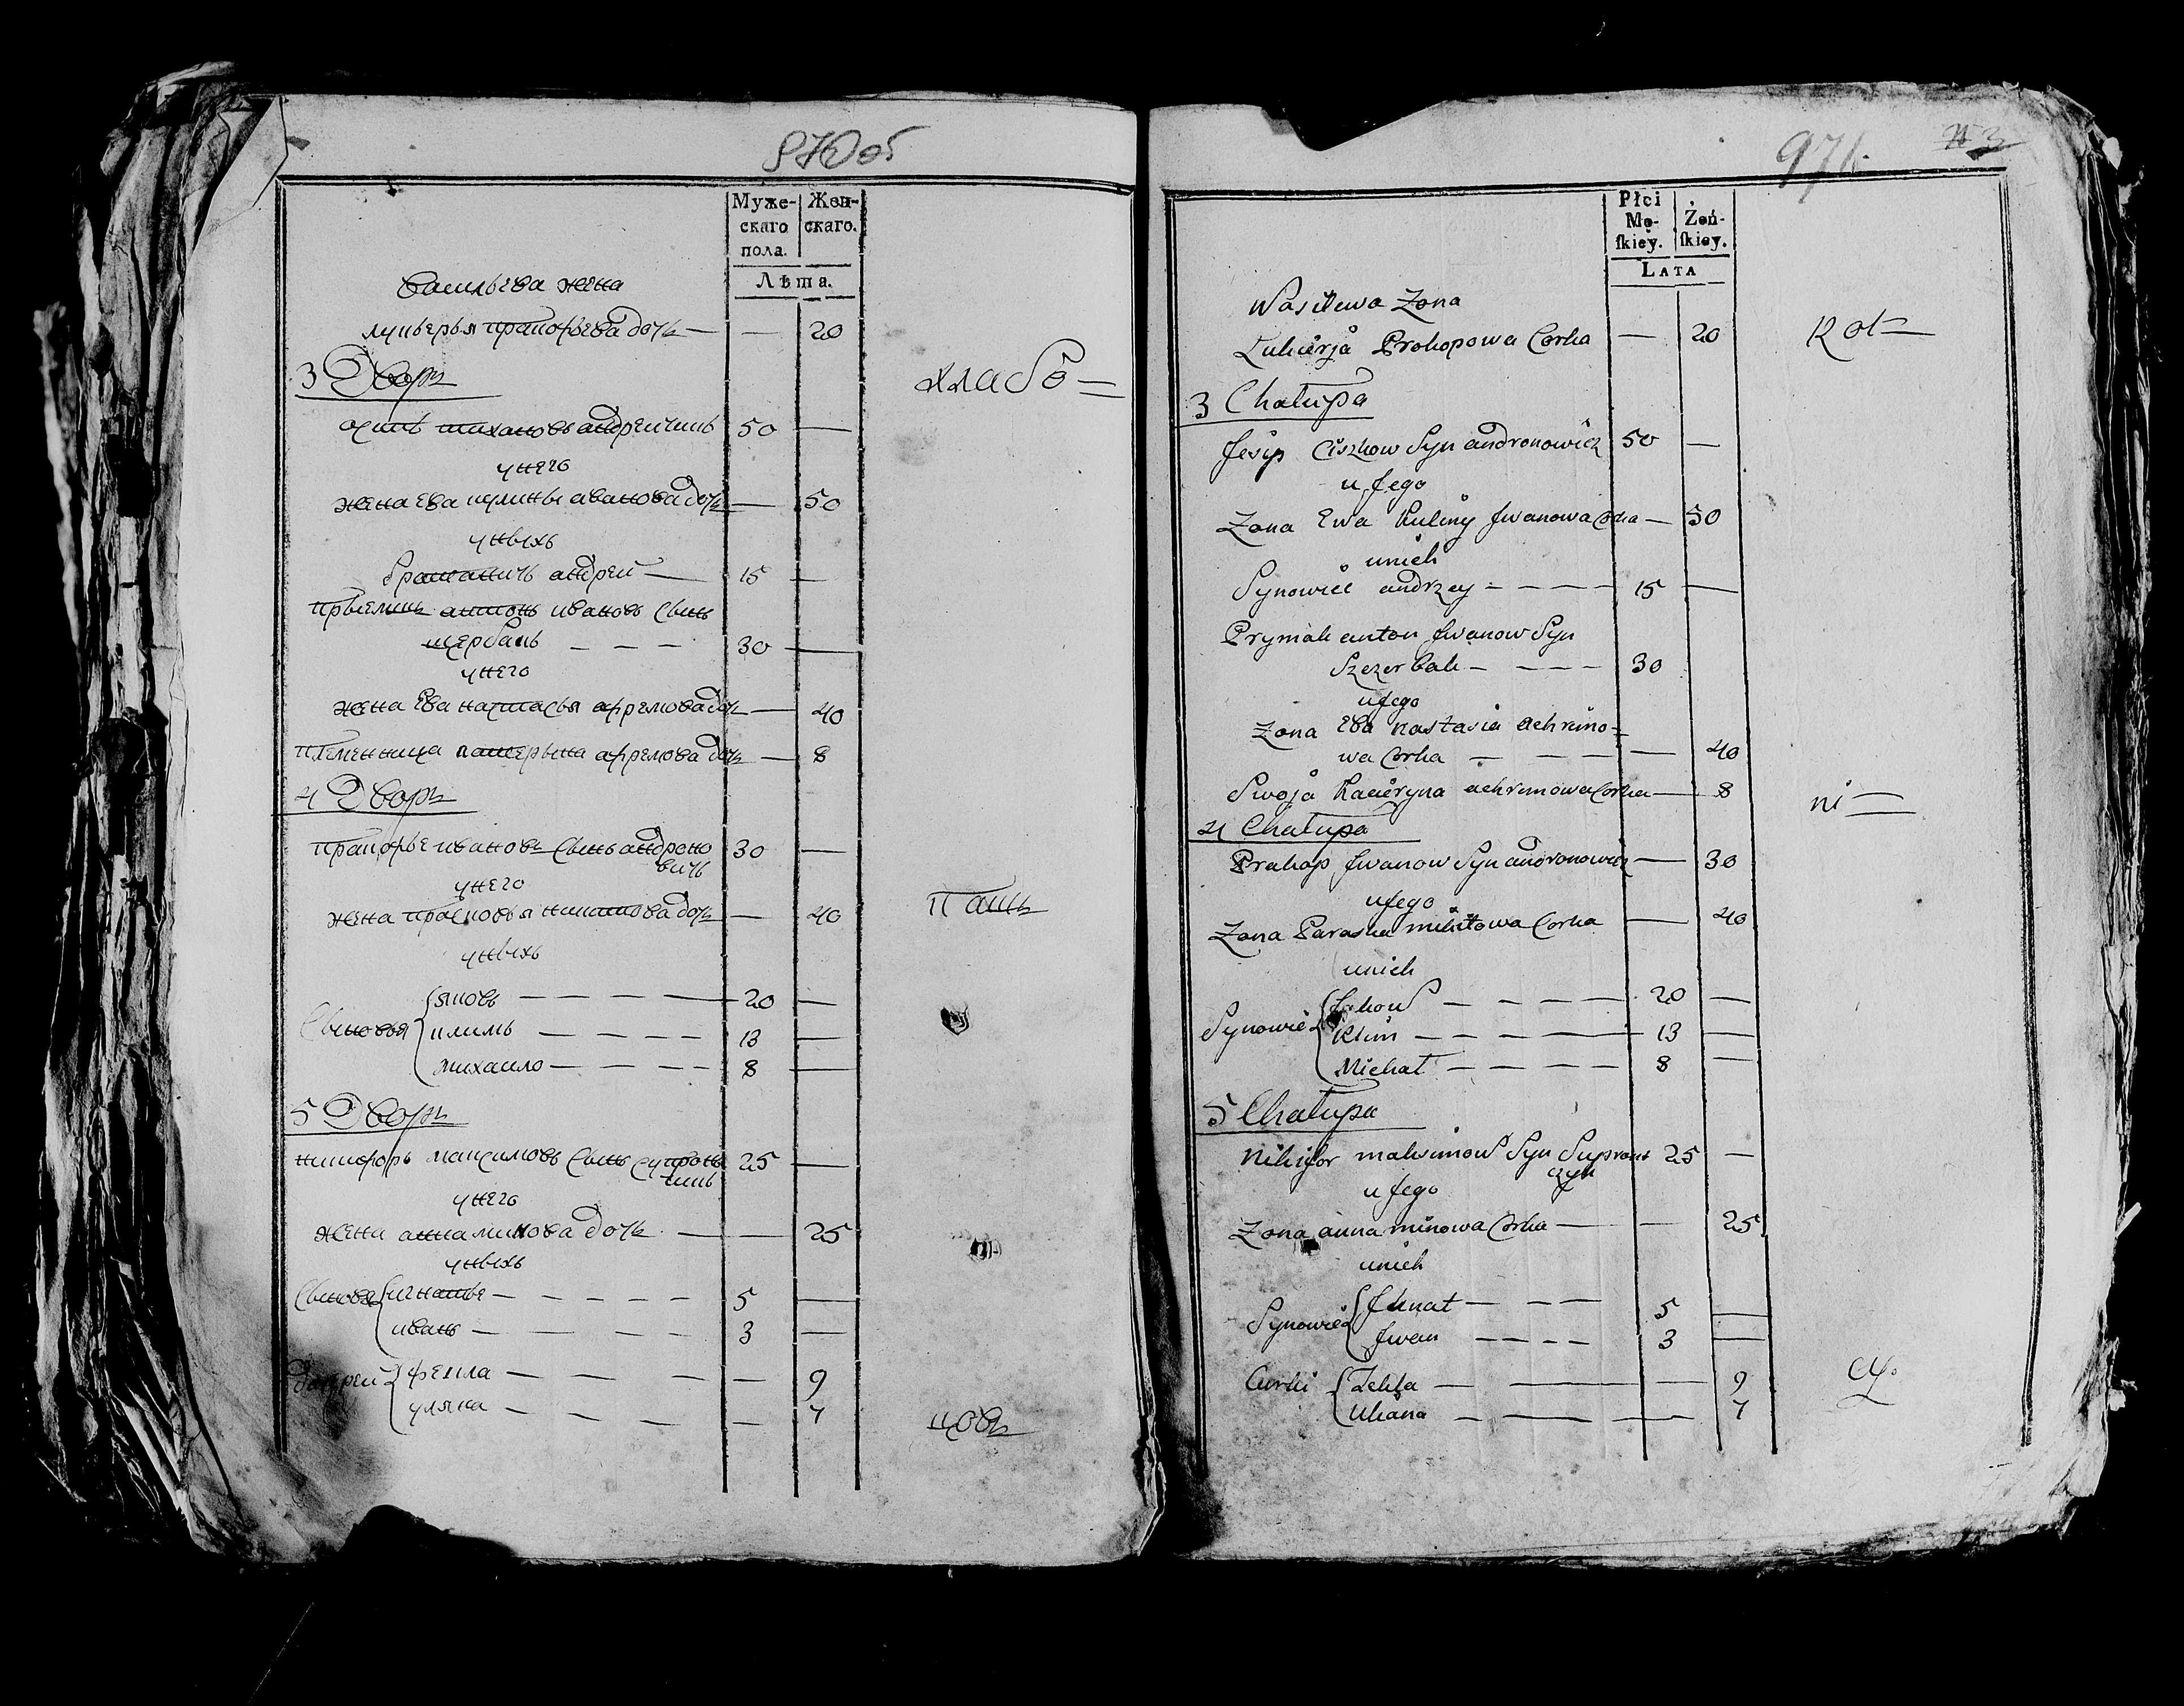 970 об
Муже-
скаго
пола.
Жен-
скаго.
Лѣта.
Васильева жена
лукерья прокофьева дочь — — 20
3 Дворъ
хласо
осипъ тихановъ андрейчикъ 50 —
унего
жена ева кулины иванова дочь — 50
уныхъ
братаничь андрей — 15 —
прыемыкъ антонъ ивановъ сынъ
щербакъ — — — 30 —
унего
жена Ева настасья афремова дочь — 40
племенница катерына афремова дочь — 8
4 Дворъ
прокофье ивановъ сынъ андроно
вичь 30 —
унего
жена прасковья никитова дочь — 40
пашь
уныхъ
Сыновья { яковъ — — — — 20 —
климъ — — — — 13 —
михаило — — — — 8 —
5 Дворъ
никифоръ максимовъ сынъ супрон
чикъ 25 —
унего
жена анна минова дочь — — 25
уныхъ
Сыновя { игнатье — — — — — 5 —
иванъ — — — — 3 —
дочерей { фекла — — — — — 9
уляна — — — — — 7
ковъ
971.
Płci
Mę-
skiey.
Żeń-
skiey.
LATA
Wasilewa Zona
Łukierja Prokopowa Corka — 20
Kot
3 Chałupa
Jesip Ciszkow Syn andronowicz 50 —
u Jego
Zona Ewa Kuliny Jwanowa Corka — 50
unich
Synowiec andrzey — — — — 15 —
Prymak anton Jwanow Syn
Szczerbak — — — — 30
uJego
Zona Ewa Nastasia achrimo-
wa Corka — — — — 40
Swoja Kacieryna achrimowa Corka — 8
ni
4 Chałupa
Prakop Jwanow Syn andronowicz — 30
uJego
Zona Paraska mikitowa Corka — 40
unich
Synowie { Jakow — — — — 20 —
Klim — — — — 13 —
Michał — — — — 8 —
5 Chałupa
Nikifor maksimow Syn Supron
czyk 25 —
u Jego
Zona anna minowa Corka — — 25
unich
Synowie { Jhnat — — — 5 —
Jwan — — — — 3 —
Curki { Tekla — — — 9
Uliana — — — — 7